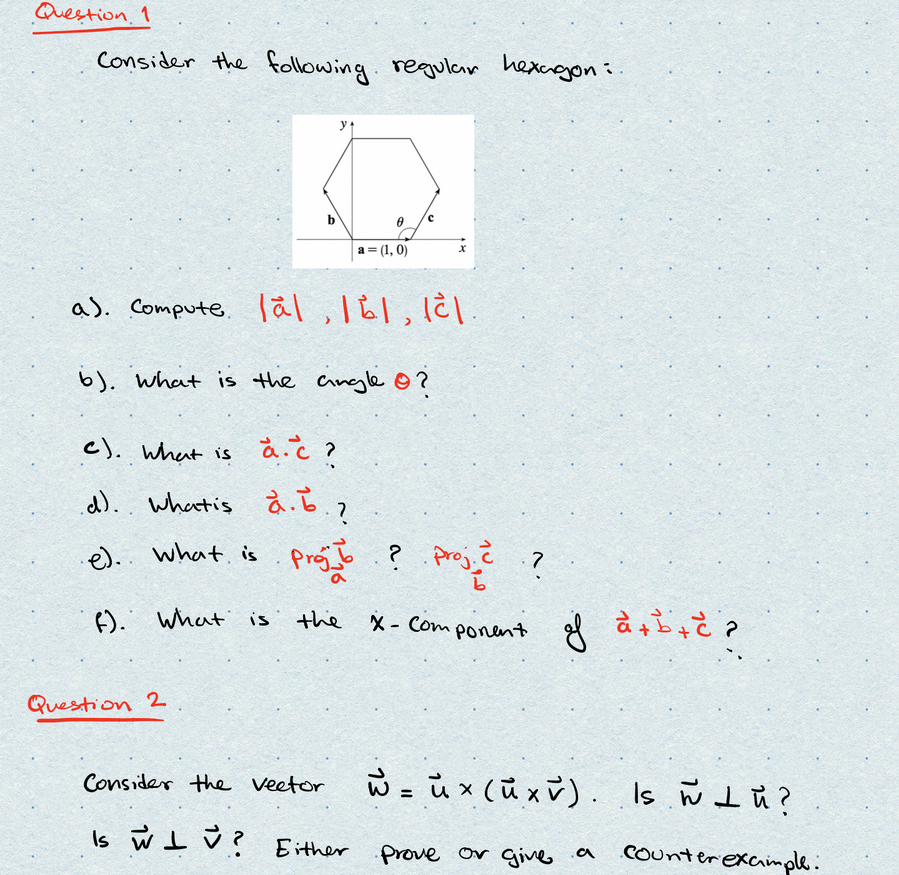 Question 1
Consider the following regular hexagon:
y
b
θ
c
a = (1, 0)
x
a). Compute |a⃗|, |b⃗|, |c⃗|.
b). What is the angle θ?
c). What is a⃗.c⃗ ?
d). What is a⃗.b⃗ ?
e). What is proj_a⃗ b⃗ ? proj_b⃗ c⃗ ?
f). What is the x-component of a⃗+b⃗+c⃗ ?
Question 2
Consider the vector w⃗ = u⃗ × (u⃗ × v⃗). Is w⃗ ⊥ u⃗?
Is w⃗ ⊥ v⃗? Either prove or give a counterexample.